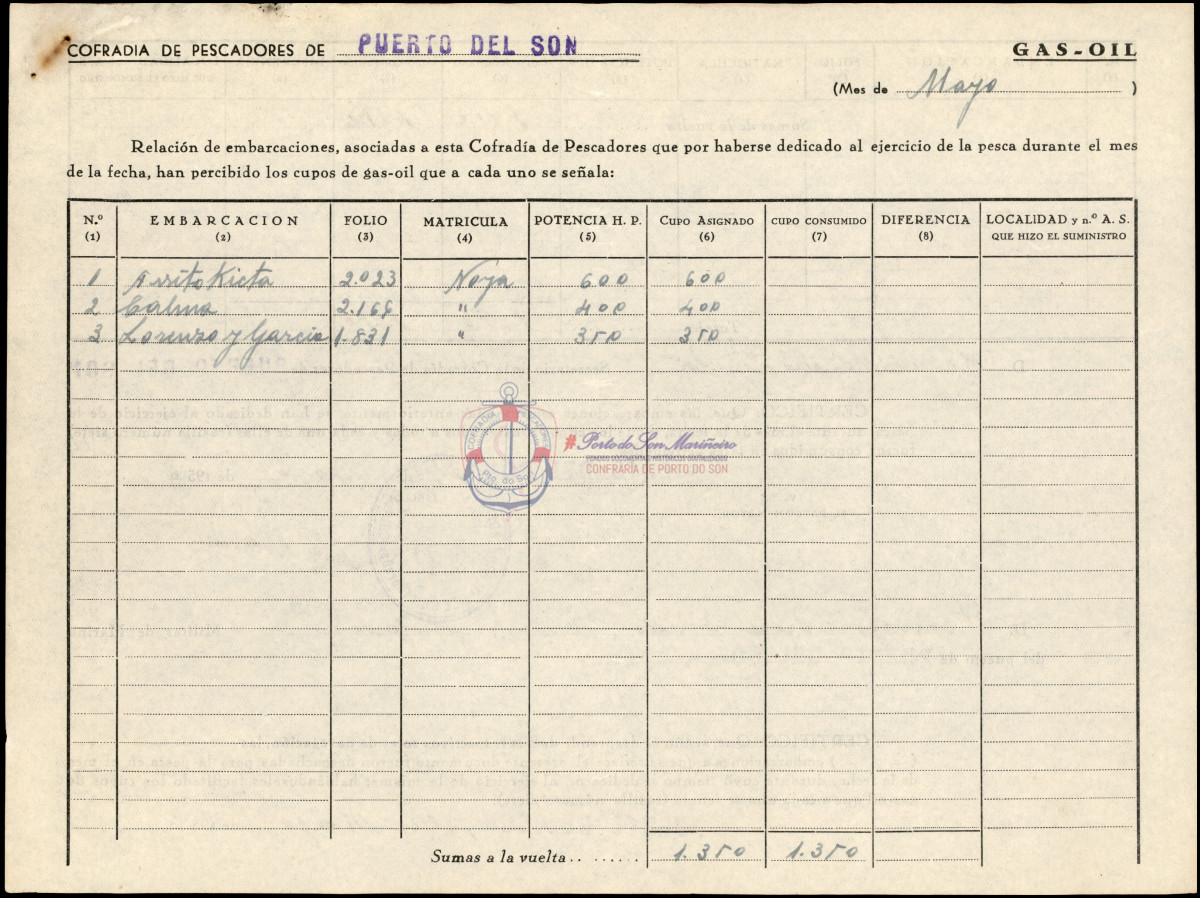 COFRADIA DE PESCADORES DE PUERTO DEL SON
GAS-OIL
(Mes de Mayo)
Relación de embarcaciones, asociadas a esta Cofradía de Pescadores que por haberse dedicado al ejercicio de la pesca durante el mes
de la fecha, han percibido los cupos de gas-oil que a cada uno se señala:
N.º EMBARCACION FOLIO MATRICULA POTENCIA H. P. CUPO ASIGNADO CUPO CONSUMIDO DIFERENCIA LOCALIDAD y n.º A. S.
(1) (2) (3) (4) (5) (6) (7) (8) QUE HIZO EL SUMINISTRO
1 2.023 Noya 600 600
2 Calma 2.166 " 400 400
3 Lorenzo y Garcia 1.831 " 350 350
COFRADIA PESCADORES
Pto. do Son
#Porto do Son Mariñeiro
FONDOS DOCUMENTAIS HISTÓRICOS DIXITALIZADOS
CONFRARÍA DE PORTO DO SON
Sumas a la vuelta.. ...... 1.350 1.350